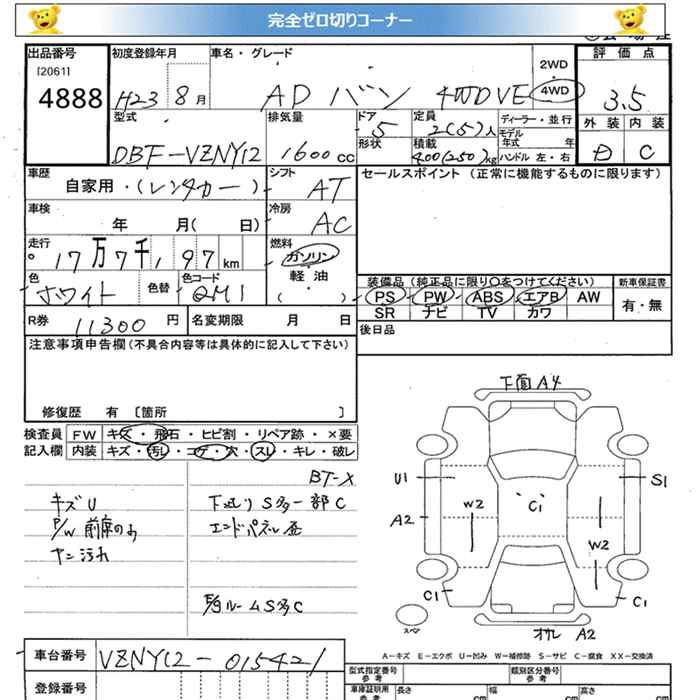 完全ゼロ切りコーナー
出品番号
[20611
4888
初度登録年月
H23 8 月
車名・グレード
AD バン 4WD VE
2WD
4WD
評価点
3.5
外装 内装
D C
型式
DBF-VZNY12
排気量
1600 CC
ドア
5
形状
定員
2(5)人
積載
400(250)kg
ディーラー・並行
モデル
年式 年
ハンドル 左・右
車歴
自家用・(レンタカー)
シフト
AT
車検
年 月( 日)
冷房
AC
走行
17万7千,197 km
燃料
ガソリン
軽油
( ・ )
色
ホワイト
色替
色コード
QM1
R券 11300 円
名変期限 月 日
セールスポイント(正常に機能するものに限ります)
装備品(純正品に限り○をつけてください)
PS PW ABS エアB AW
SR ナビ TV カワ
新車保証書
有・無
後日品
注意事項申告欄(不具合内容等は具体的に記入して下さい)
修復歴 有 〔箇所 〕
検査員
記入欄
FW キズ・飛石・ヒビ割・リペア跡・×要
内装 キズ・汚レ・コゲ・穴・スレ・キレ・破レ
BT-X
キズU
P/W 前席のみ
ヤニ汚れ
下廻りS多 一部C
エンドパネル歪
E/gルームS多C
下面A4
U1
S1
A2
W2
C1
W2
C1
C1
スペア
オサレ A2
A-キズ E-エクボ U-凹み W-補修跡 S-サビ C-腐食 XX-交換済
車台番号
VZNY12-015421
登録番号
型式指定番号
参考
類別区分番号
参考
車庫証明用
参考
長さ cm
幅 cm
高さ cm